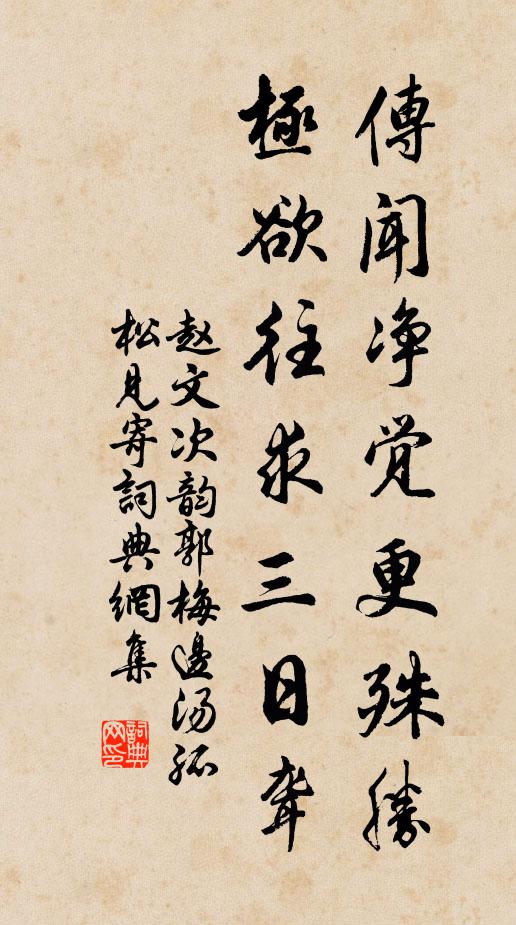 傳聞净觉更殊勝
極欲往求三日聋
赵文次韵郭梅邊汤孤
松見寄詞典網集
詞典
网印